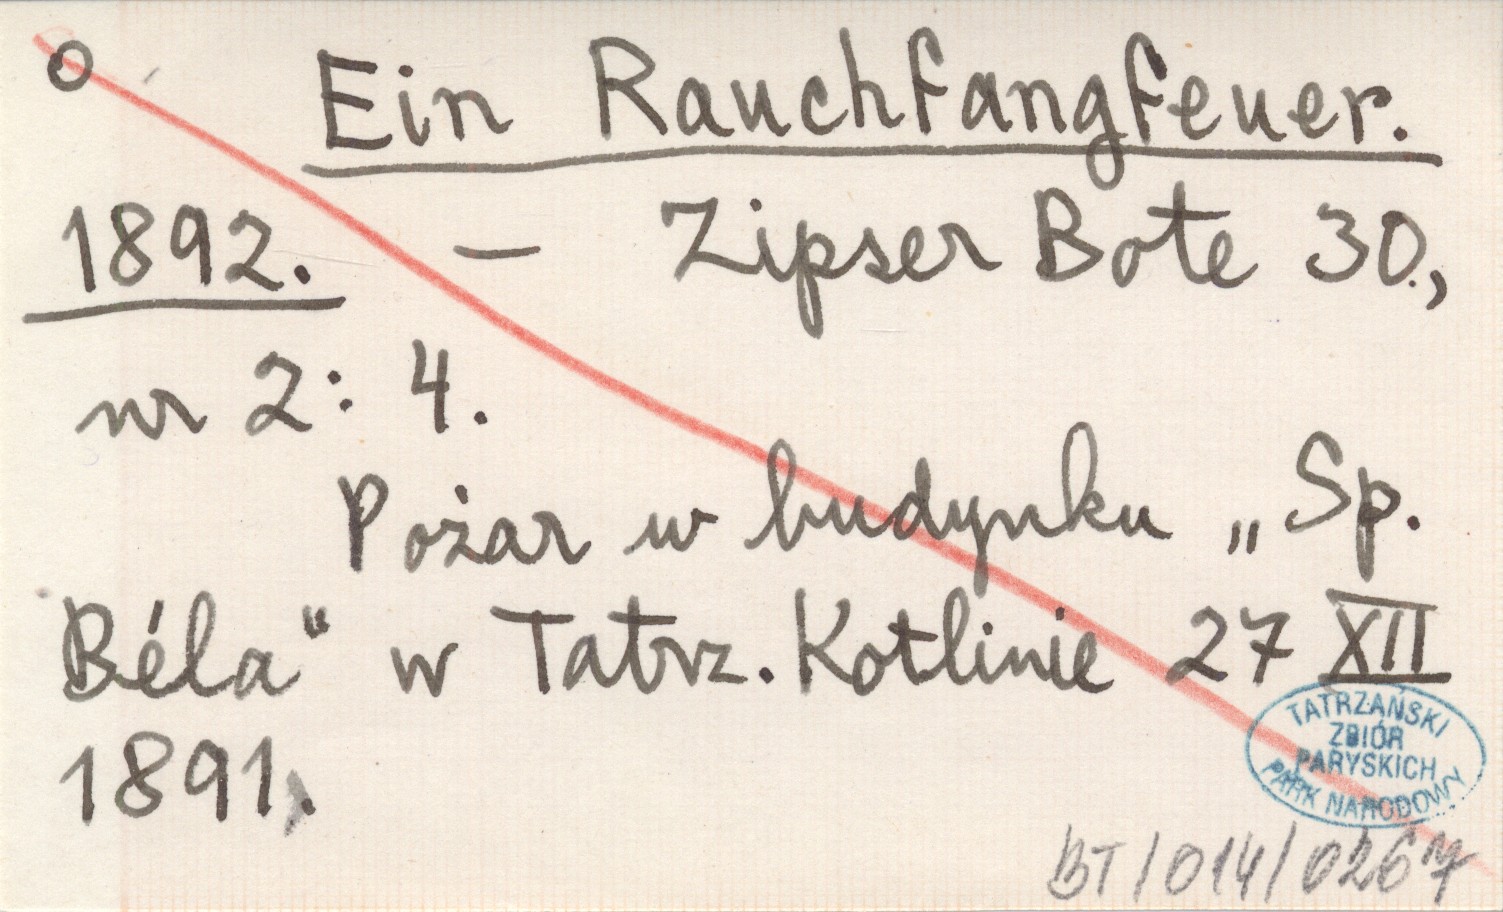 o Ein Rauchfangfeuer.
1892. – Zipser Bote 30.,
nr 2: 4.
Pożar w budynku „Sp.
Béla" w Tatrz. Kotlinie 27 XII
1891.
TATRZAŃSKI
ZBIÓR
PARYSKICH
PARK NARODOWY
BT/014/0267